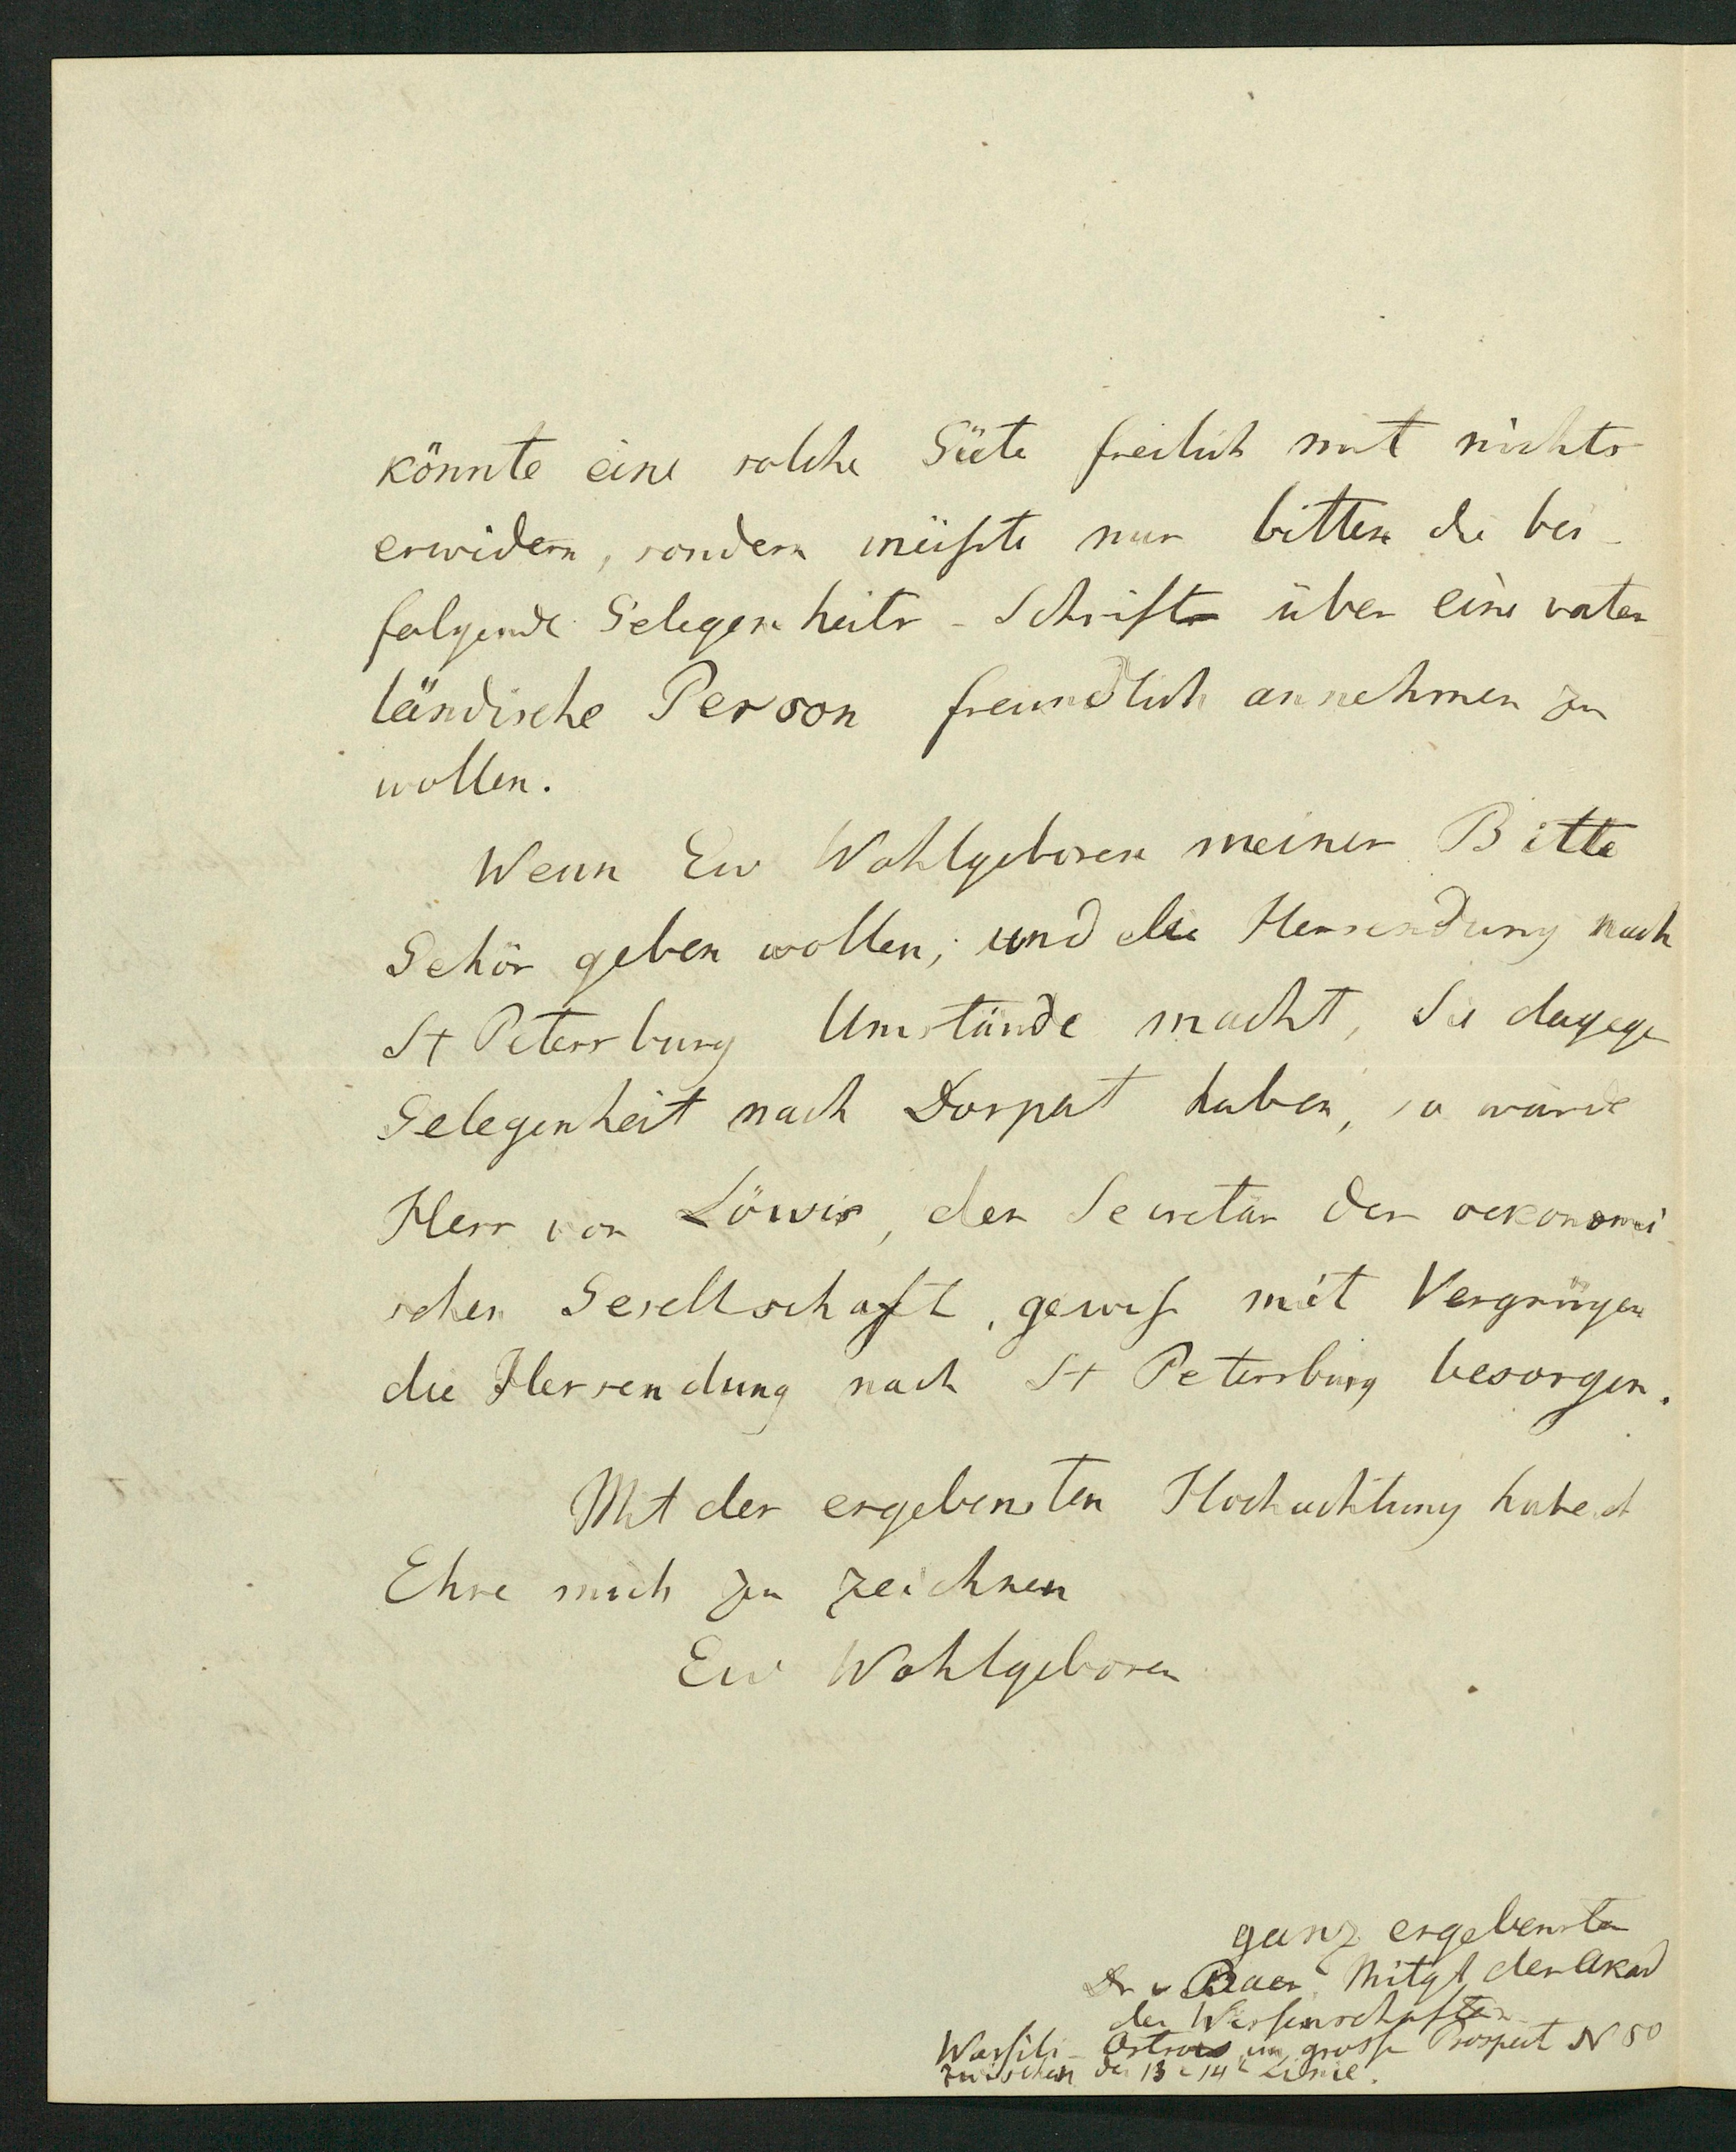 könnte eine solche Güte freilich mit nichts
erwidern, sondern müsste nur bitten die bei-
folgende Gelegenheits-Schrift über eine vater-
ländische Person freundlich annehmen zu
wollen.
Wenn Ew Wohlgeboren meiner Bitte
Gehör geben wollen, und die Hersendung nach
St Petersburg Umstände macht, Sie dagegen
Gelegenheit nach Dorpat haben, so würde
Herr von Löwis, der Secretär der oekonomi-
schen Gesellschaft, gewiss mit Vergnügen
die Hersendung nach St Petersburg besorgen.
Mit der ergebensten Hochachtung habe d
Ehre mich zu zeichnen
Ew Wohlgeboren
ganz ergebenster
Dr v Baer, Mitgl der Akad
der Wissenschaften
Wassili-Ostrow im grossen Prospect N 50
zwischen der 13 u 14t Linie.